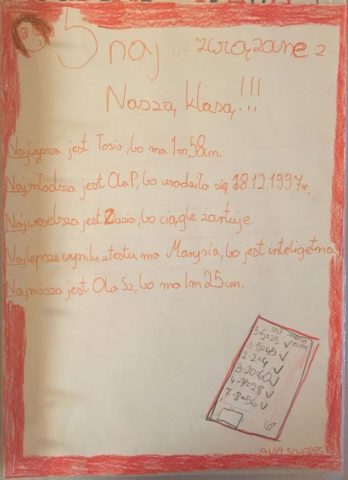 5 naj..... związane z
Naszą klasą!!!
Najwyższa jest Tosia, bo ma 1m 58cm.
Najmłodsza jest Ola P., bo urodziła się 18.12.1997r.
Najweselsza jest Zuzia, bo ciągle żartuje
Najlepsze wyniki z testu ma Marysia, bo jest inteligetna
Najniższa jest Ola Sz, bo ma 1m 25cm.
Test
5·5=25 ✓
2·2=4 ✓
3·20=60 ✓
4·7=28 ✓
7·8=56 ✓